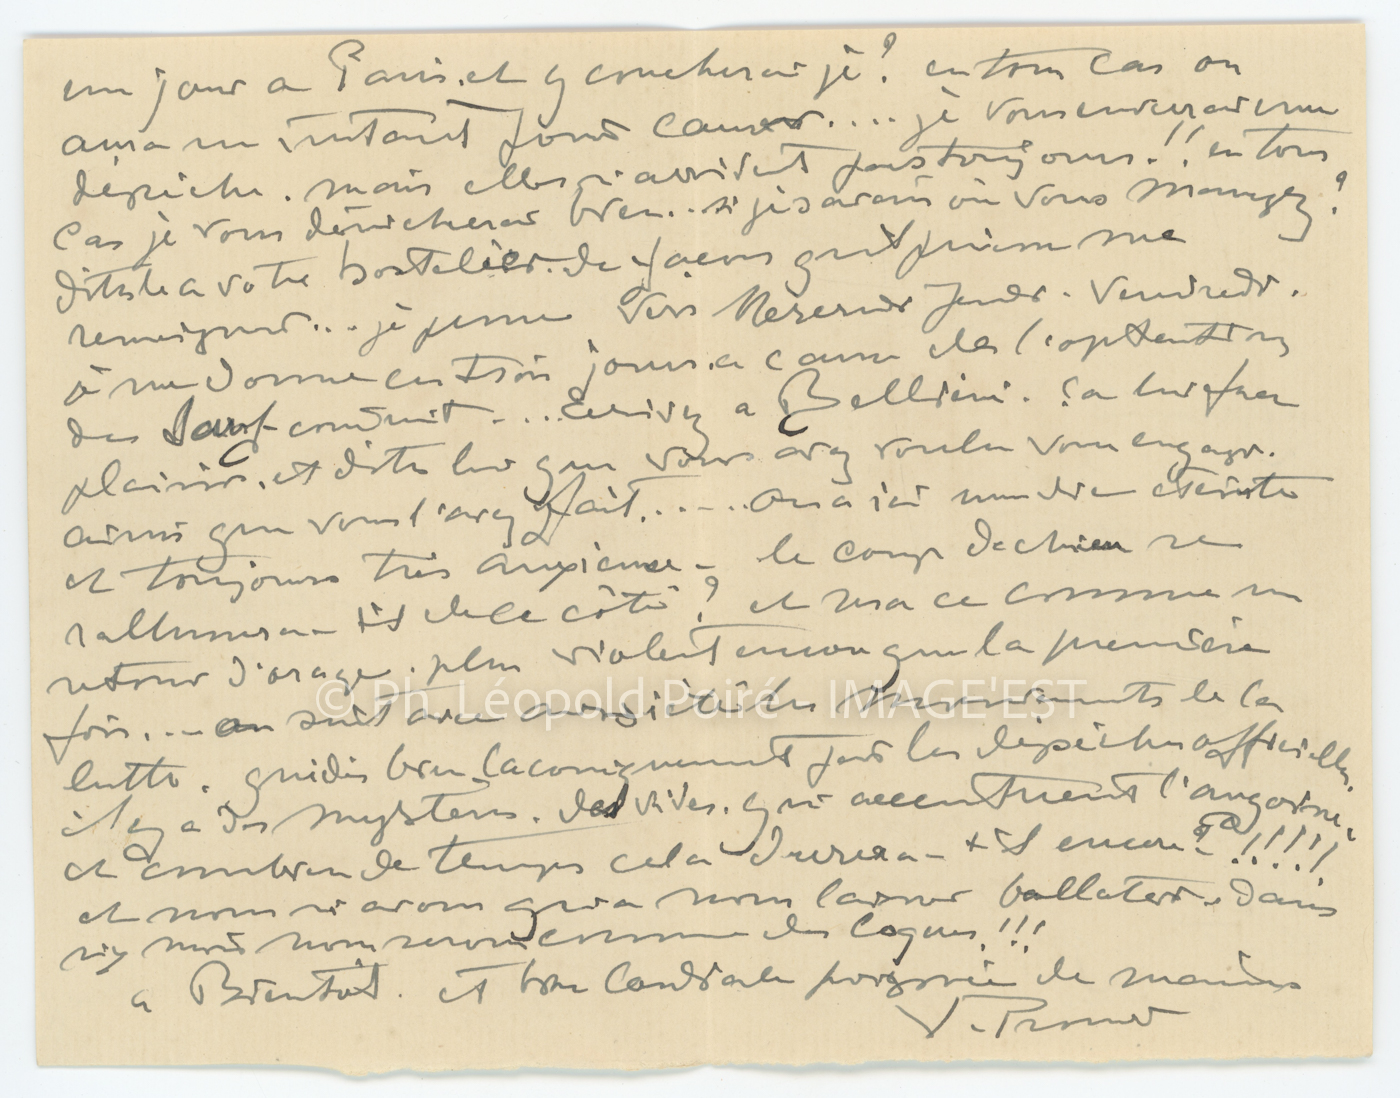 un jour a Paris. et y coucherai je? en tous cas on
aura un instant pour causer.... je vous enverrai une
dépèche. mais elles n'arrivent pas toujours.!! en tous
cas je vous dénicherai bien... si je savais où vous mangez?
dites le a votre hostelier. de façon qu'il puisse me
renseigner... je pense Vers Mercredi Jeudi. Vendredi.
je me donne ces trois jours. a cause de l'optention
des Sauf-conduit.... Ecrivez a Bellieni. ça lui fera
plaisir. et dites lui que vous avez voulu vous engager.
ainsi que vous l'avez fait....... on a ici une vie éteinte
et toujours très anxieuse - le coup de chien se
rallumera-t-il de ce côté? et sera ce comme un
retour d'orage. plus violent encore que la première
fois... on suit avec anxiété les mouvements de la
lutte. guidés bien laconiquement par les dépèches officielles.
il y a des mystères. des vides. qui accentuent l'angoisse.
et combien de temps cela durera-t-il encore? !!!!!
et nous n'avons qu'a nous laisser ballater. dans
six mois nous serons comme des loques.!!!
a Bientôt. et bien Cordiale poignée de mains
V. Prouvé
© Ph. Léopold Poiré IMAGE'EST